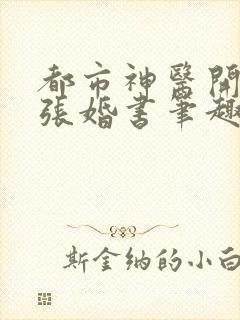 都市神醫開
張婚書筆趣
斯金纳的小白